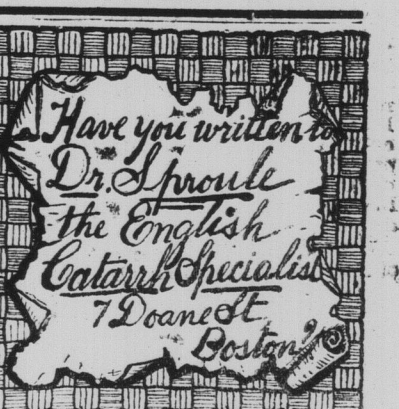 Have you written to
Dr. Sproule
the English
Catarrh Specialist
7 Doane St
Boston?